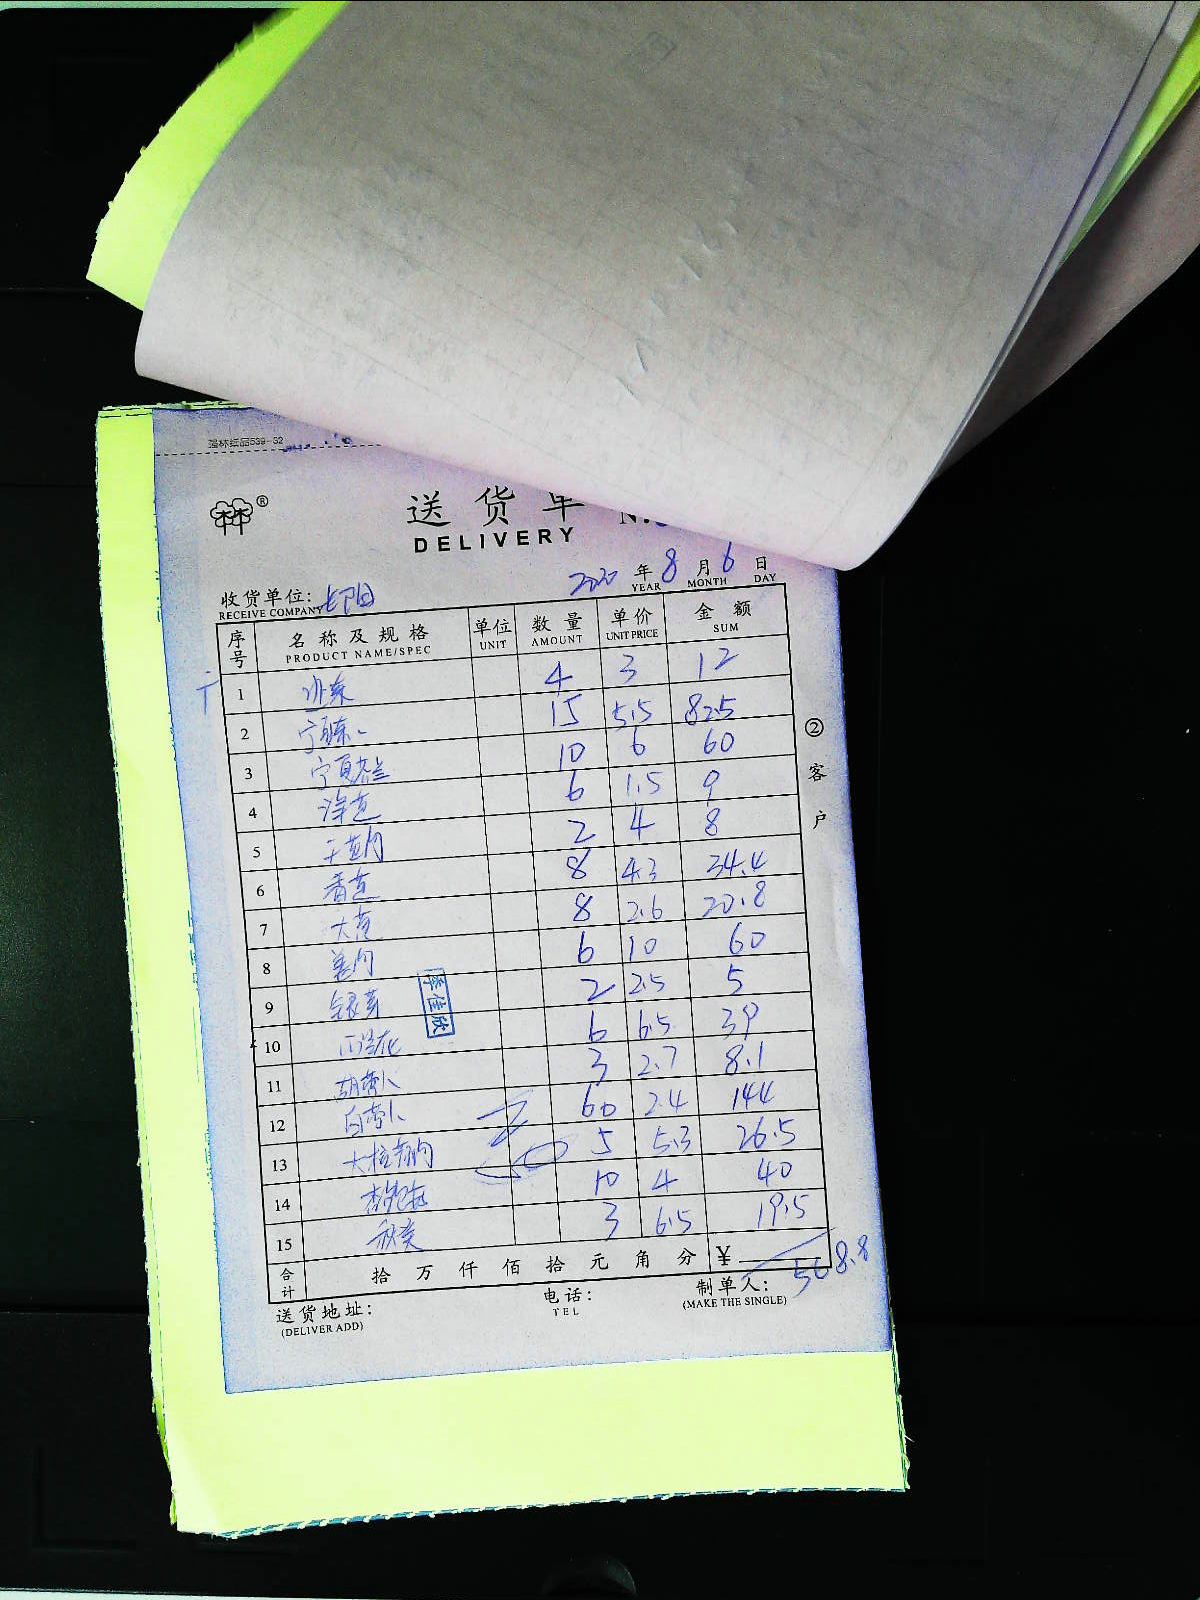 强林纸品539-32
林®
送货单 N:
DELIVERY
2020 年 8 月 6 日
YEAR MONTH DAY
收货单位:
RECEIVE COMPANY
序号 名称及规格 单位 数量 单价 金额
PRODUCT NAME/SPEC UNIT AMOUNT UNIT PRICE SUM
1 4 3 12
2 15 5.5 82.5
3 10 6 60
4 洋芋 6 1.5 9
5 2 4 8
6 香芹 8 4.3 34.4
7 大葱 8 2.6 20.8
8 6 10 60
9 银芽 2 2.5 5
10 西兰花 6 6.5 39
11 胡萝卜 3 2.7 8.1
12 白萝卜 60 2.4 144
13 5 5.3 26.5
14 杏鲍菇 10 4 40
15 秋葵 3 6.5 19.5
李佳欣
合计 拾 万 仟 佰 拾 元 角 分 ¥ 568.8
送货地址: 电话: 制单人:
(DELIVER ADD) TEL (MAKE THE SINGLE)
②客户